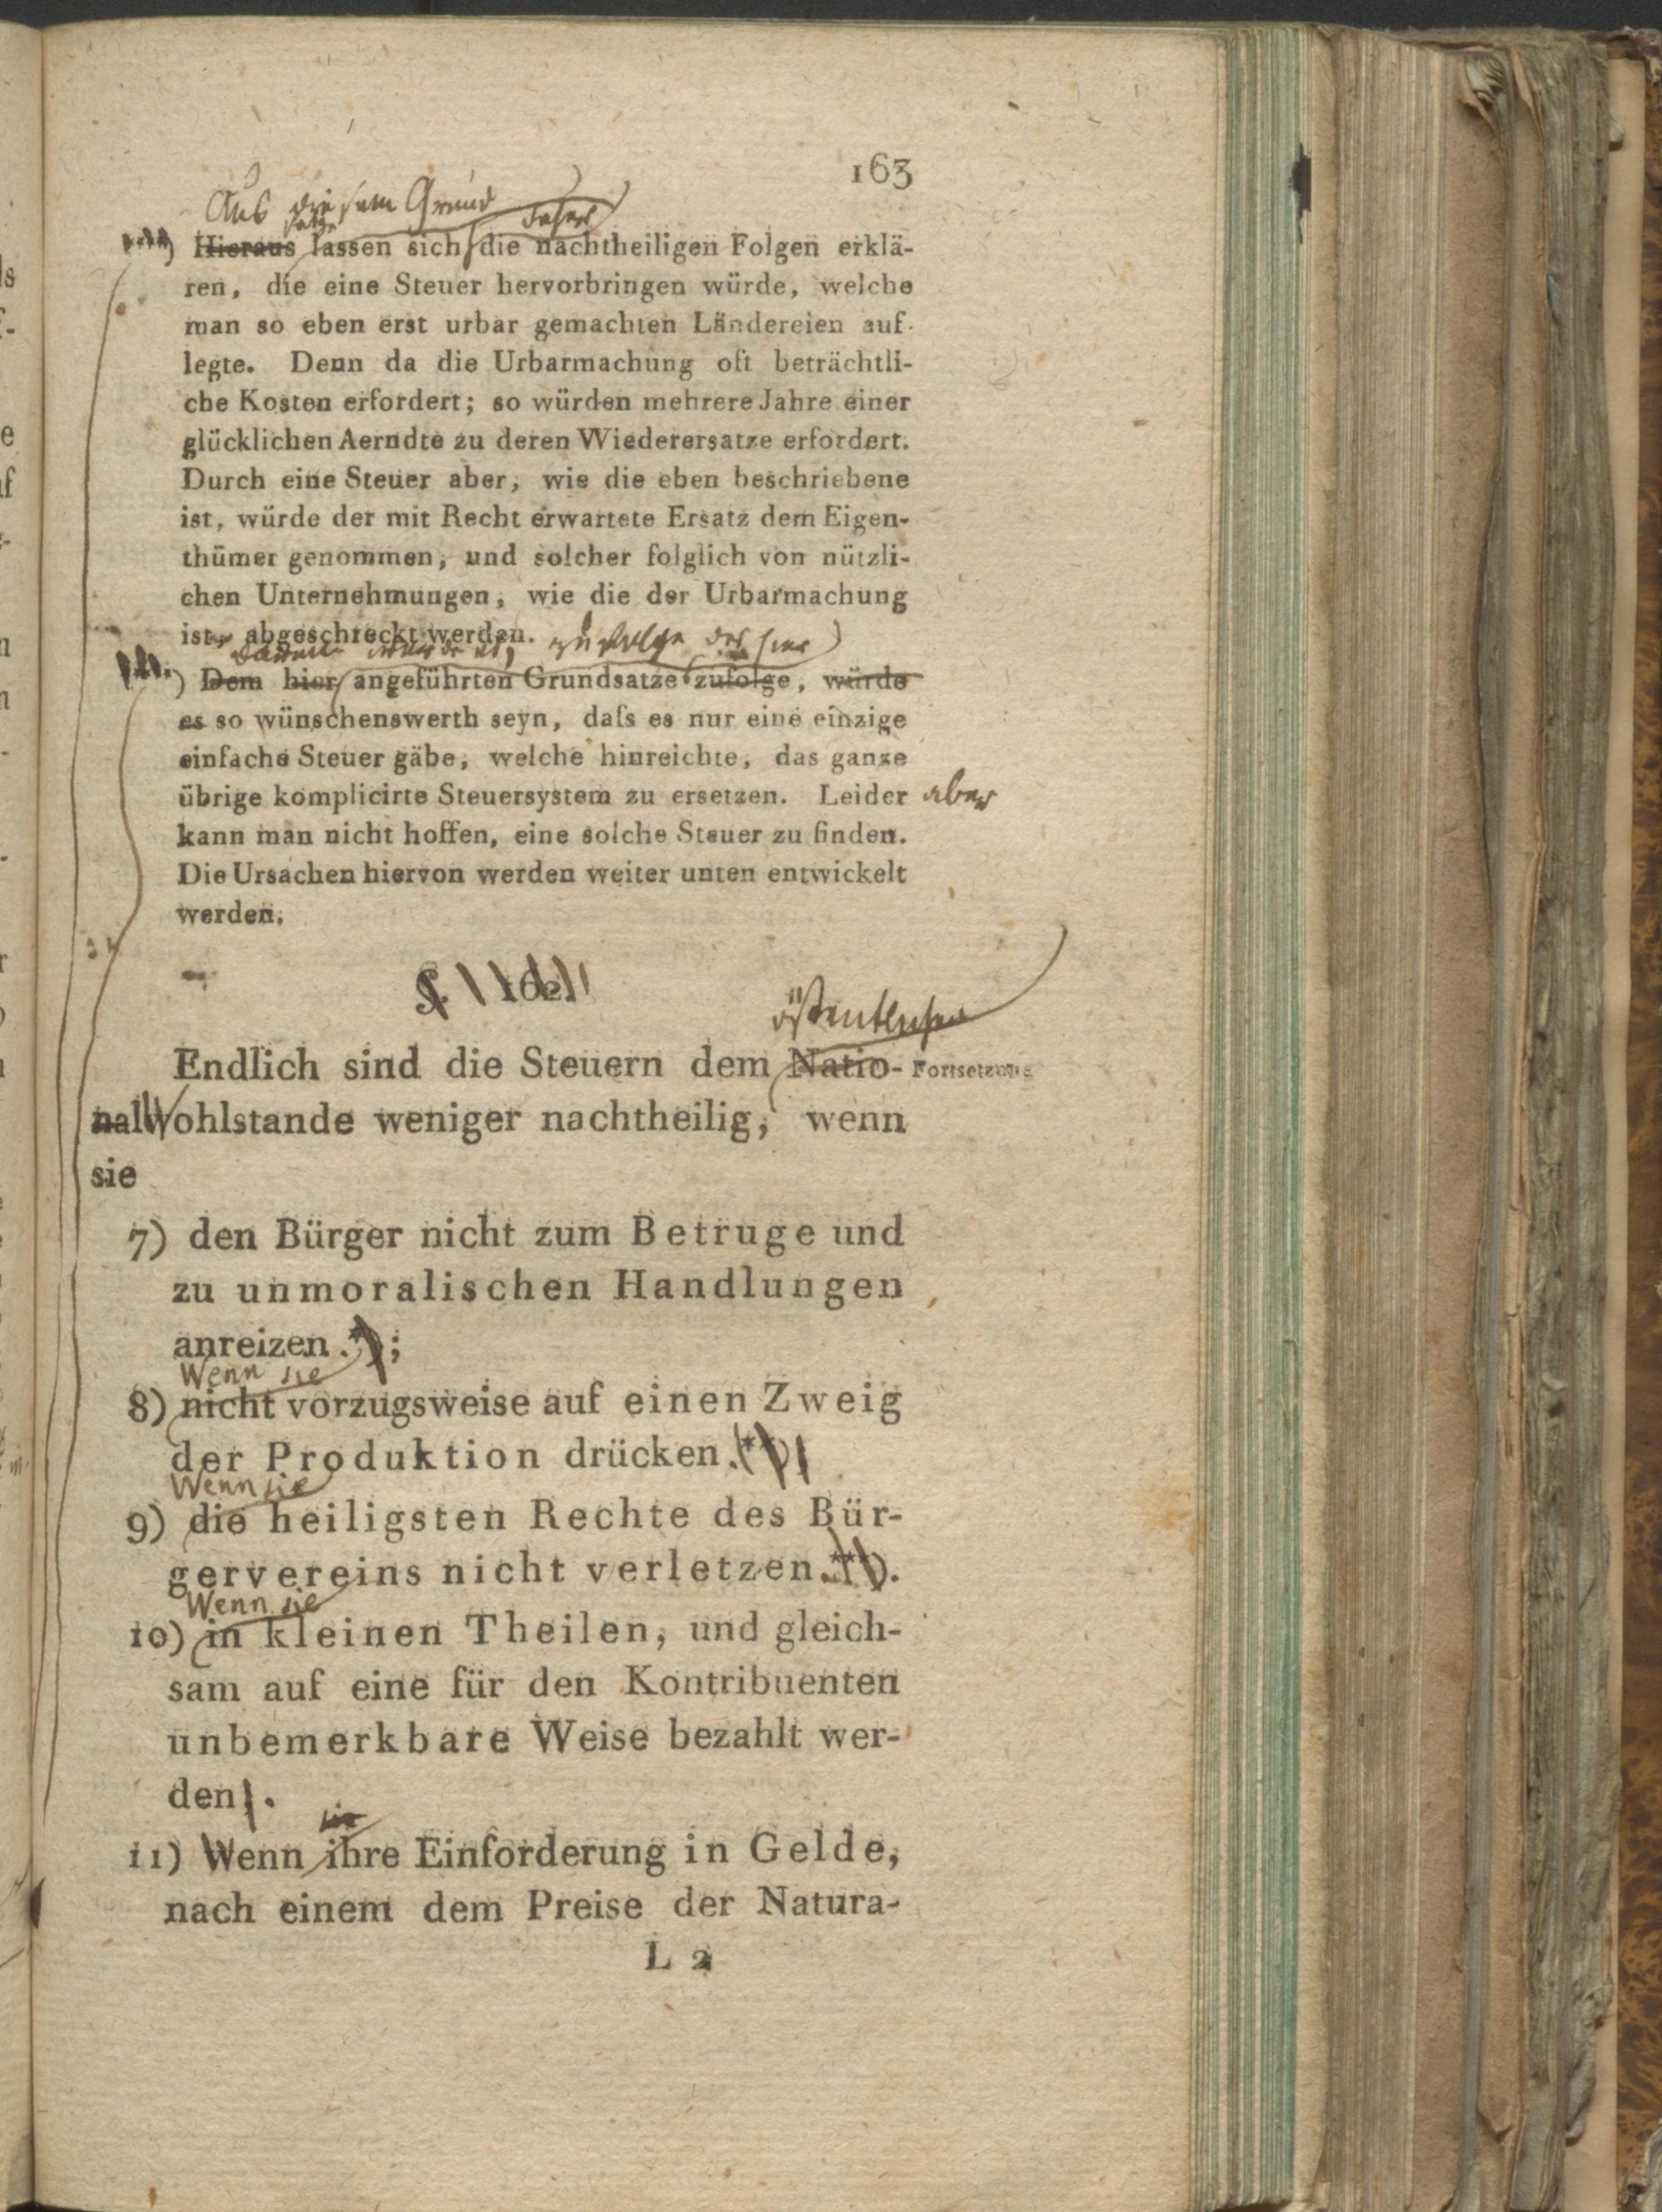 163
Aus diesem Grund
satze daher
Hieraus lassen sich die nachtheiligen Folgen erklä-
ren, die eine Steuer hervorbringen würde, welche
man so eben erst urbar gemachten Ländereien auf-
legte. Denn da die Urbarmachung oft beträchtli-
che Kosten erfordert; so würden mehrere Jahre einer
glücklichen Aerndte zu deren Wiederersatze erfordert.
Durch eine Steuer aber, wie die eben beschriebene
ist, würde der mit Recht erwartete Ersatz dem Eigen-
thümer genommen, und solcher folglich von nützli-
chen Unternehmungen, wie die der Urbarmachung
ist, abgeschreckt werden.
würde es, zufolge des hier
) Dem hier angeführten Grundsatze zufolge, würde
es so wünschenswerth seyn, daſs es nur eine einzige
einfache Steuer gäbe, welche hinreichte, das ganze
übrige komplicirte Steuersystem zu ersetzen. Leider aber
kann man nicht hoffen, eine solche Steuer zu finden.
Die Ursachen hiervon werden weiter unten entwickelt
werden.
§. 162.
öffentlichen
Endlich sind die Steuern dem Natio- Fortsetzung
nalWohlstande weniger nachtheilig, wenn
sie
7) den Bürger nicht zum Betruge und
zu unmoralischen Handlungen
anreizen *);
Wenn sie
8) nicht vorzugsweise auf einen Zweig
der Produktion drücken. **)
Wenn sie
9) die heiligsten Rechte des Bür-
gervereins nicht verletzen. ***).
Wenn sie
10) in kleinen Theilen, und gleich-
sam auf eine für den Kontribuenten
unbemerkbare Weise bezahlt wer-
den.
11) Wenn ihre Einforderung in Gelde,
nach einem dem Preise der Natura-
L 2